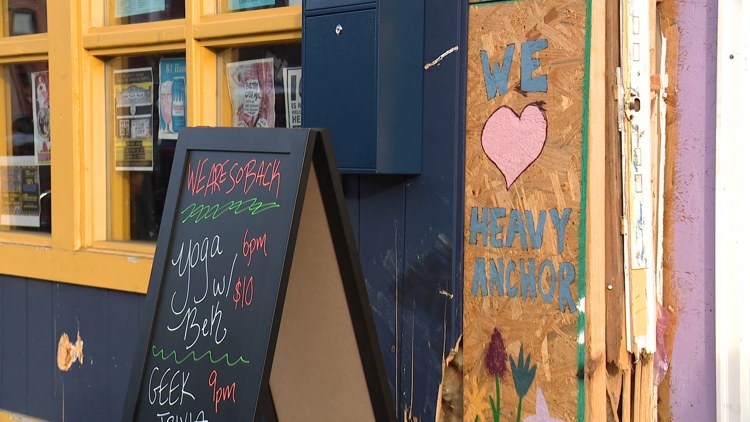 WE ARE SO BACK
Yoga 6pm
w/ $10
Bek
GEEK 9pm
TRIVIA
WE
HEAVY
ANCHOR